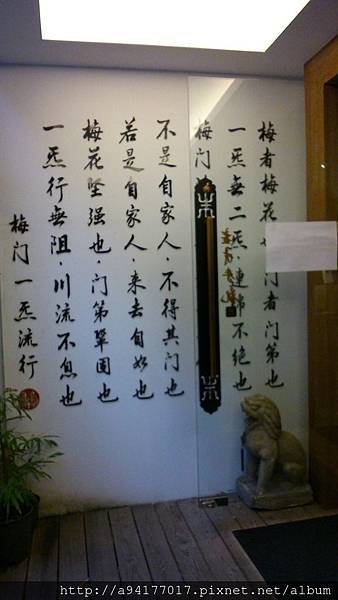 梅者梅花也門者门第也
一炁無二炁·連綿不绝也
梅门
不是自家人·不得其门也
若是自家人·来去自如也
梅花坚强也·门第鞏固也
一炁行無阻·川流不息也
梅门一炁流行
http://a94177017.pixnet.net/album